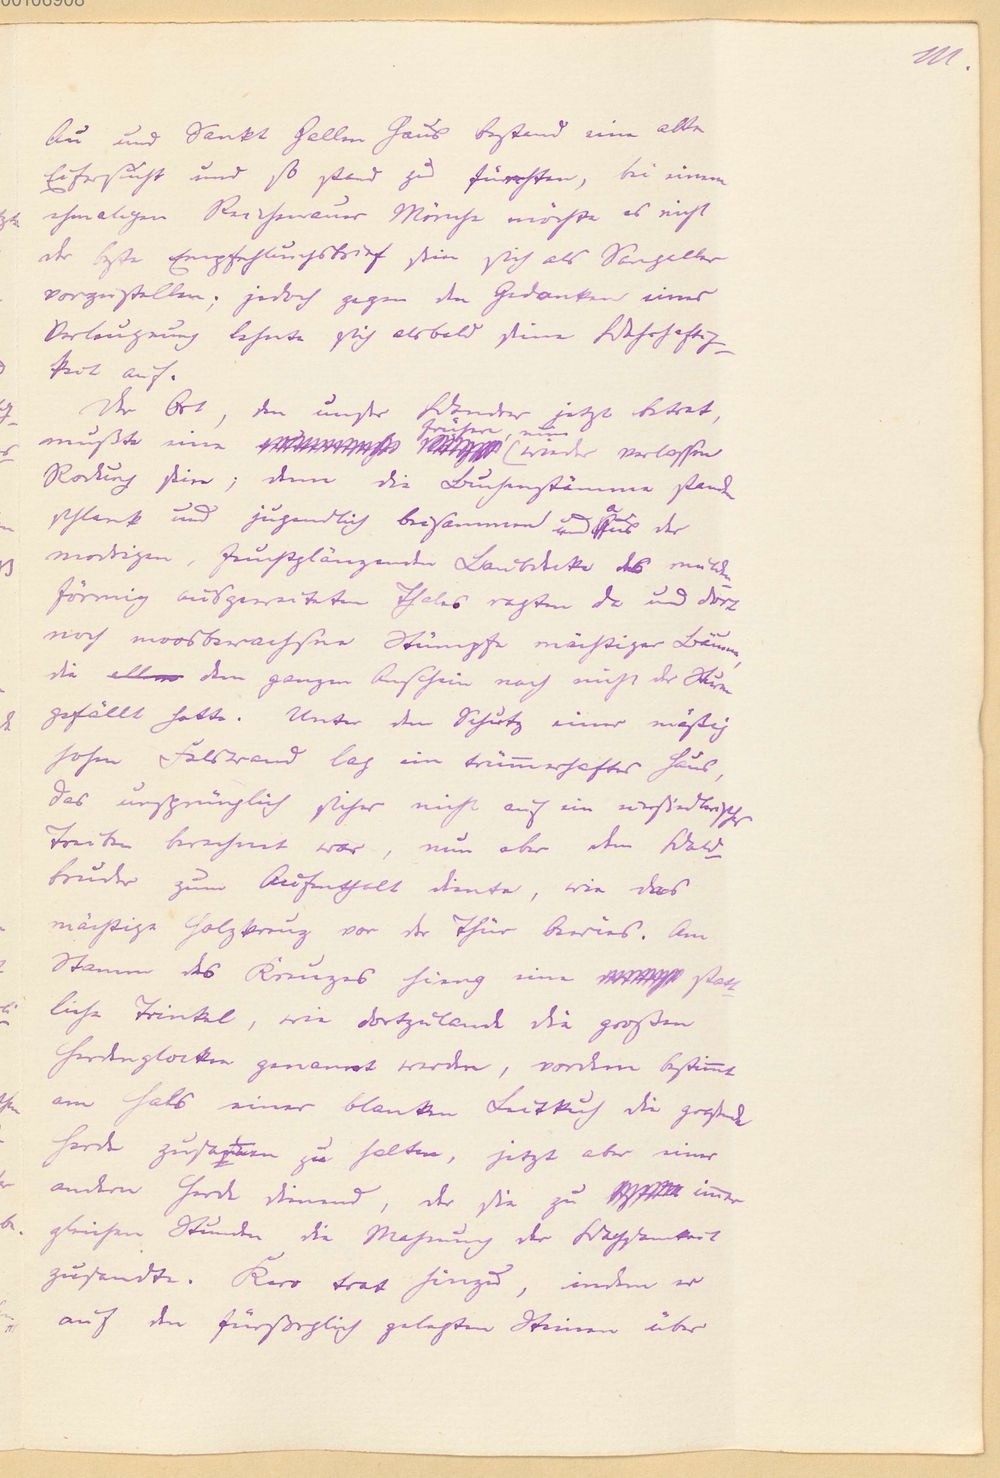 00106908
111.
Au und Sankt Gallen Haus bestand eine alte
Eifersucht und so stand zu fürchten, bei einem
ehmaligen Reichenauer Mönche möchte es nicht
der beste Empfehlungsbrief sein sich als Sangaller
vorzustellen; jedoch gegen den Gedanken einer
Verleugnung lehnte sich alsbald seine Wahrhaftig-
keit auf.
Der Ort, den unser Wandrer jetzt betrat,
frühere, nun
mußte eine wieder verlassene
Rodung sein; denn die Buchenstämme standen
schlank und jugendlich beisammen und aus der
modrigen, feuchtglänzenden Laubdecke des mulden-
förmig ausgeweiteten Thales ragten da und dort
noch moosbewachsne Stümpfe mächtiger Bäume,
die allem dem ganzen Anschein nach nicht der Sturm
gefällt hatte. Unter dem Schutz einer mäßig
hohen Felswand lag ein trümmerhaftes Haus,
das ursprünglich sicher nicht auf ein einsiedlerisches
Treiben berechnet war, nun aber dem Wald-
bruder zum Aufenthalt diente, wie das
mächtige Holzkreuz vor der Thür bewies. Am
Stamm des Kreuzes hieng eine statt-
liche Trinkel, wie dortzulande die großen
Herdenglocken genannt werden, vordem bestimmt
am Hals einer blanken Leitkuh die grasende
Herde zusammen zu halten, jetzt aber einer
andern Herde dienend, der sie zu immer
gleichen Stunden die Mahnung der Wachsamkeit
zusandte. Kero trat hinzu, indem er
auf den fürsorglich gelegten Steinen über